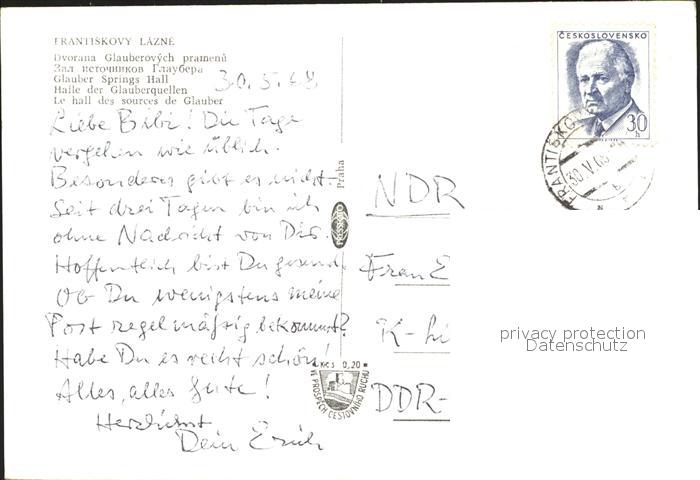 FRANTIŠKOVY LÁZNĚ
Dvorana Glauberových pramenů
Зал источников Глаубера
Glauber Springs Hall
Halle der Glauberquellen
Le hall des sources de Glauber
30.5.68
Liebe Bibi! Die Tage
vergehen wie üblich.
Besonderes gibt es nicht.
Seit drei Tagen bin ich
ohne Nachricht von Dir.
Hoffentlich bist Du gesund.
Ob Du wenigstens meine
Post regelmäßig bekommst?
Habe Du es recht schön!
Alles, alles Gute!
Herzlichst
Dein Erich
Praha
PRESSFOTO
Kčs 0,20
VE PROSPĚCH CESTOVNÍHO RUCHU
ČESKOSLOVENSKO
30 h
30.V.68
NDR
Frau E
K-
DDR-
privacy protection
Datenschutz